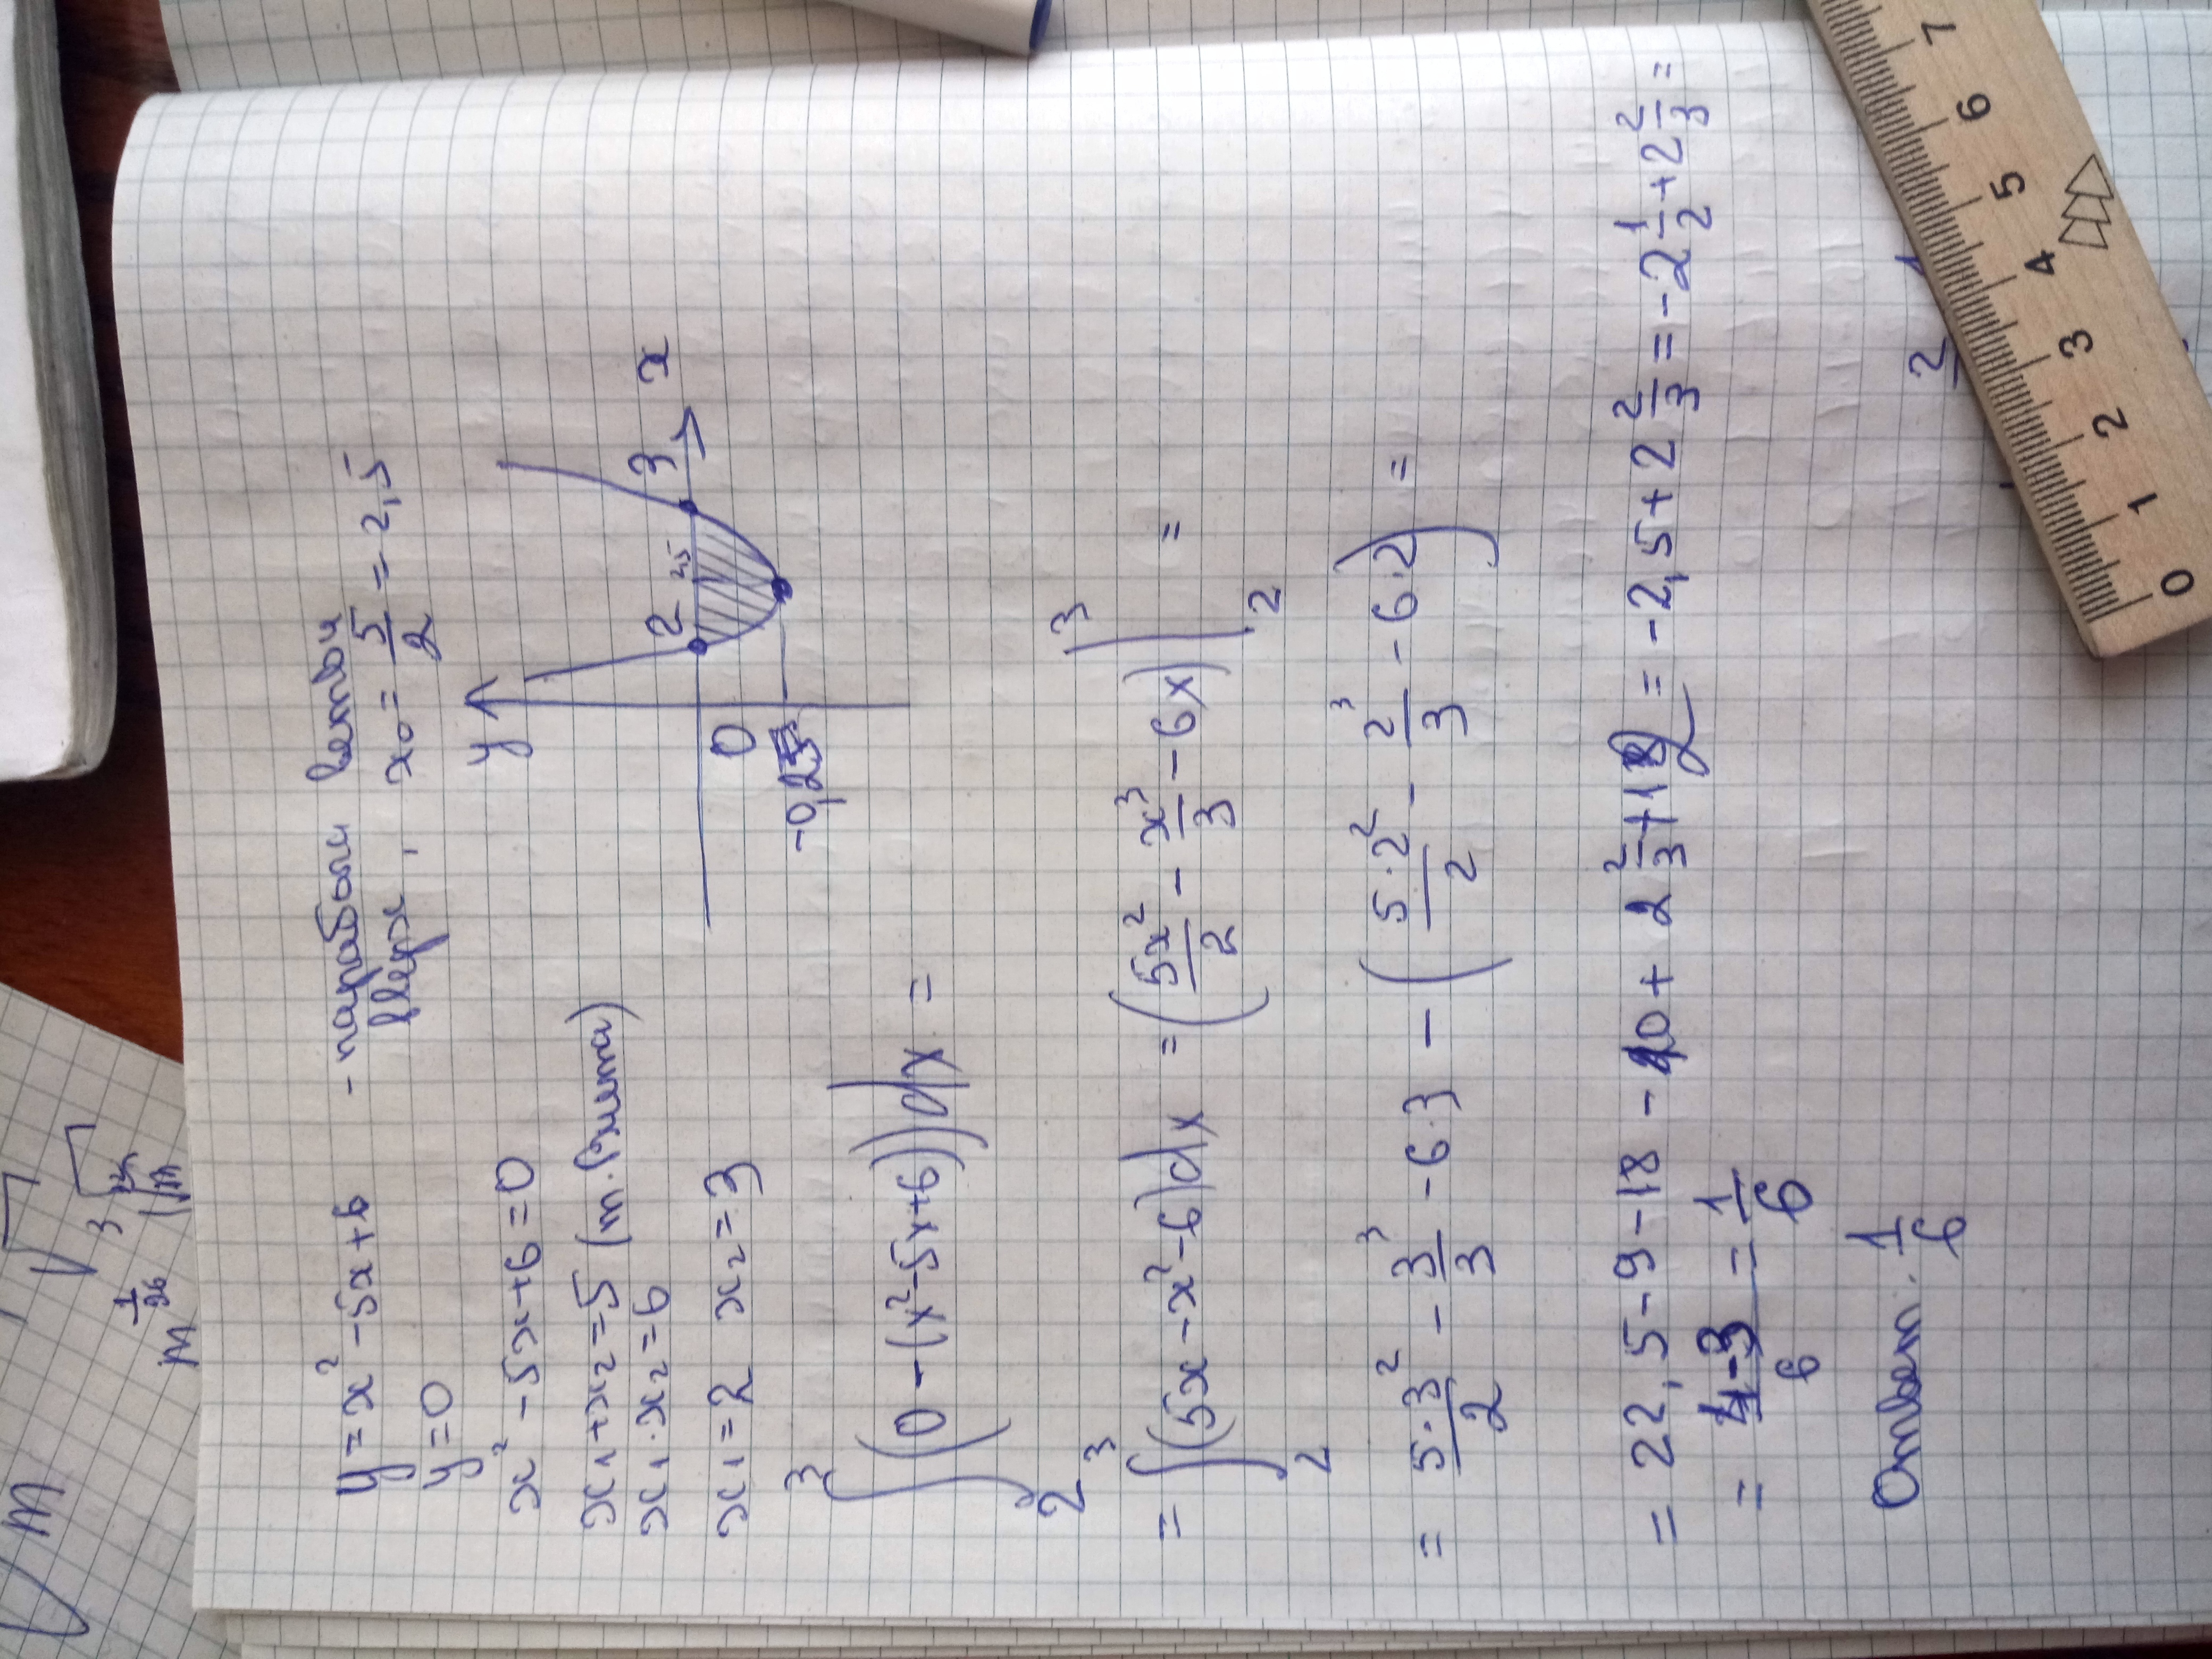 y = x² - 5x + 6 - парабола ветви
y = 0 вверх, x₀ = 5/2 = 2,5
x² - 5x + 6 = 0
x₁ + x₂ = 5 (т. Виета)
x₁ · x₂ = 6
x₁ = 2 x₂ = 3
y
2 2,5 3 x
0
-0,25
∫₂³ (0 - (x² - 5x + 6))dx =
= ∫₂³ (5x - x² - 6)dx = (5x²/2 - x³/3 - 6x)|₂³ =
= 5·3²/2 - 3³/3 - 6·3 - (5·2²/2 - 2³/3 - 6·2) =
= 22,5 - 9 - 18 - 10 + 2 2/3 + 12 = -2,5 + 2 2/3 = -2 1/2 + 2 2/3 =
= 4-3/6 = 1/6
Ответ: 1/6
0 1 2 3 4 5 6 7